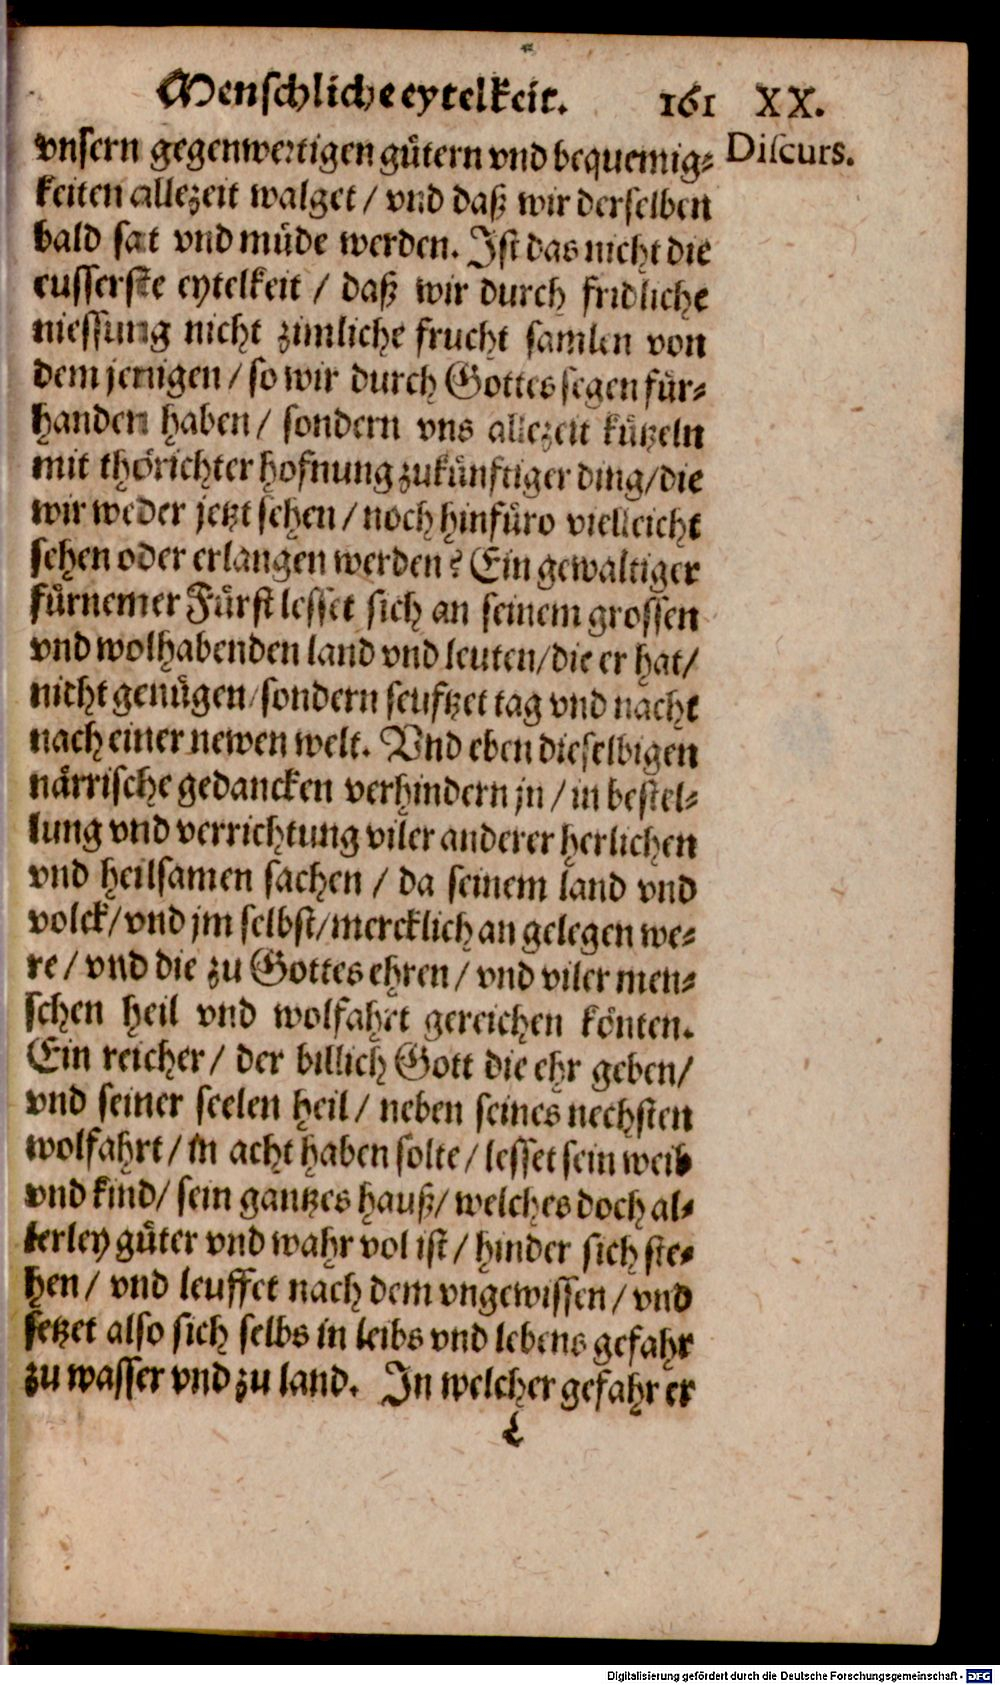 Menschliche eytelkeit. 161 XX.
vnsern gegenwertigen gütern vnd bequemig- Discurs.
keiten allezeit walget / vnd daß wir derselben
bald sat vnd müde werden. Ist das nicht die
eusserste eytelkeit / daß wir durch fridliche
niessung nicht zimliche frucht samlen von
dem jenigen / so wir durch Gottes segen für-
handen haben / sondern vns allezeit kützeln
mit thörichter hofnung zukünftiger ding / die
wir weder jetzt sehen / noch hinfüro vielleicht
sehen oder erlangen werden? Ein gewaltiger
fürnemer Fürst lesset sich an seinem grossen
vnd wolhabenden land vnd leuten / die er hat /
nicht genügen / sondern seuftzet tag vnd nacht
nach einer newen welt. Vnd eben dieselbigen
närrische gedancken verhindern jn / in bestel-
lung vnd verrichtung viler anderer herlichen
vnd heilsamen sachen / da seinem land vnd
volck / vnd jm selbst / mercklich an gelegen we-
re / vnd die zu Gottes ehren / vnd viler men-
schen heil vnd wolfahrt gereichen könten.
Ein reicher / der billich Gott die ehr geben /
vnd seiner seelen heil / neben seines nechsten
wolfahrt / in acht haben solte / lesset sein weib
vnd kind / sein gantzes hauß / welches doch al-
lerley güter vnd wahr vol ist / hinder sich ste-
hen / vnd leuffet nach dem vngewissen / vnd
setzet also sich selbs in leibs vnd lebens gefahr
zu wasser vnd zu land. In welcher gefahr er
L
Digitalisierung gefördert durch die Deutsche Forschungsgemeinschaft - DFG